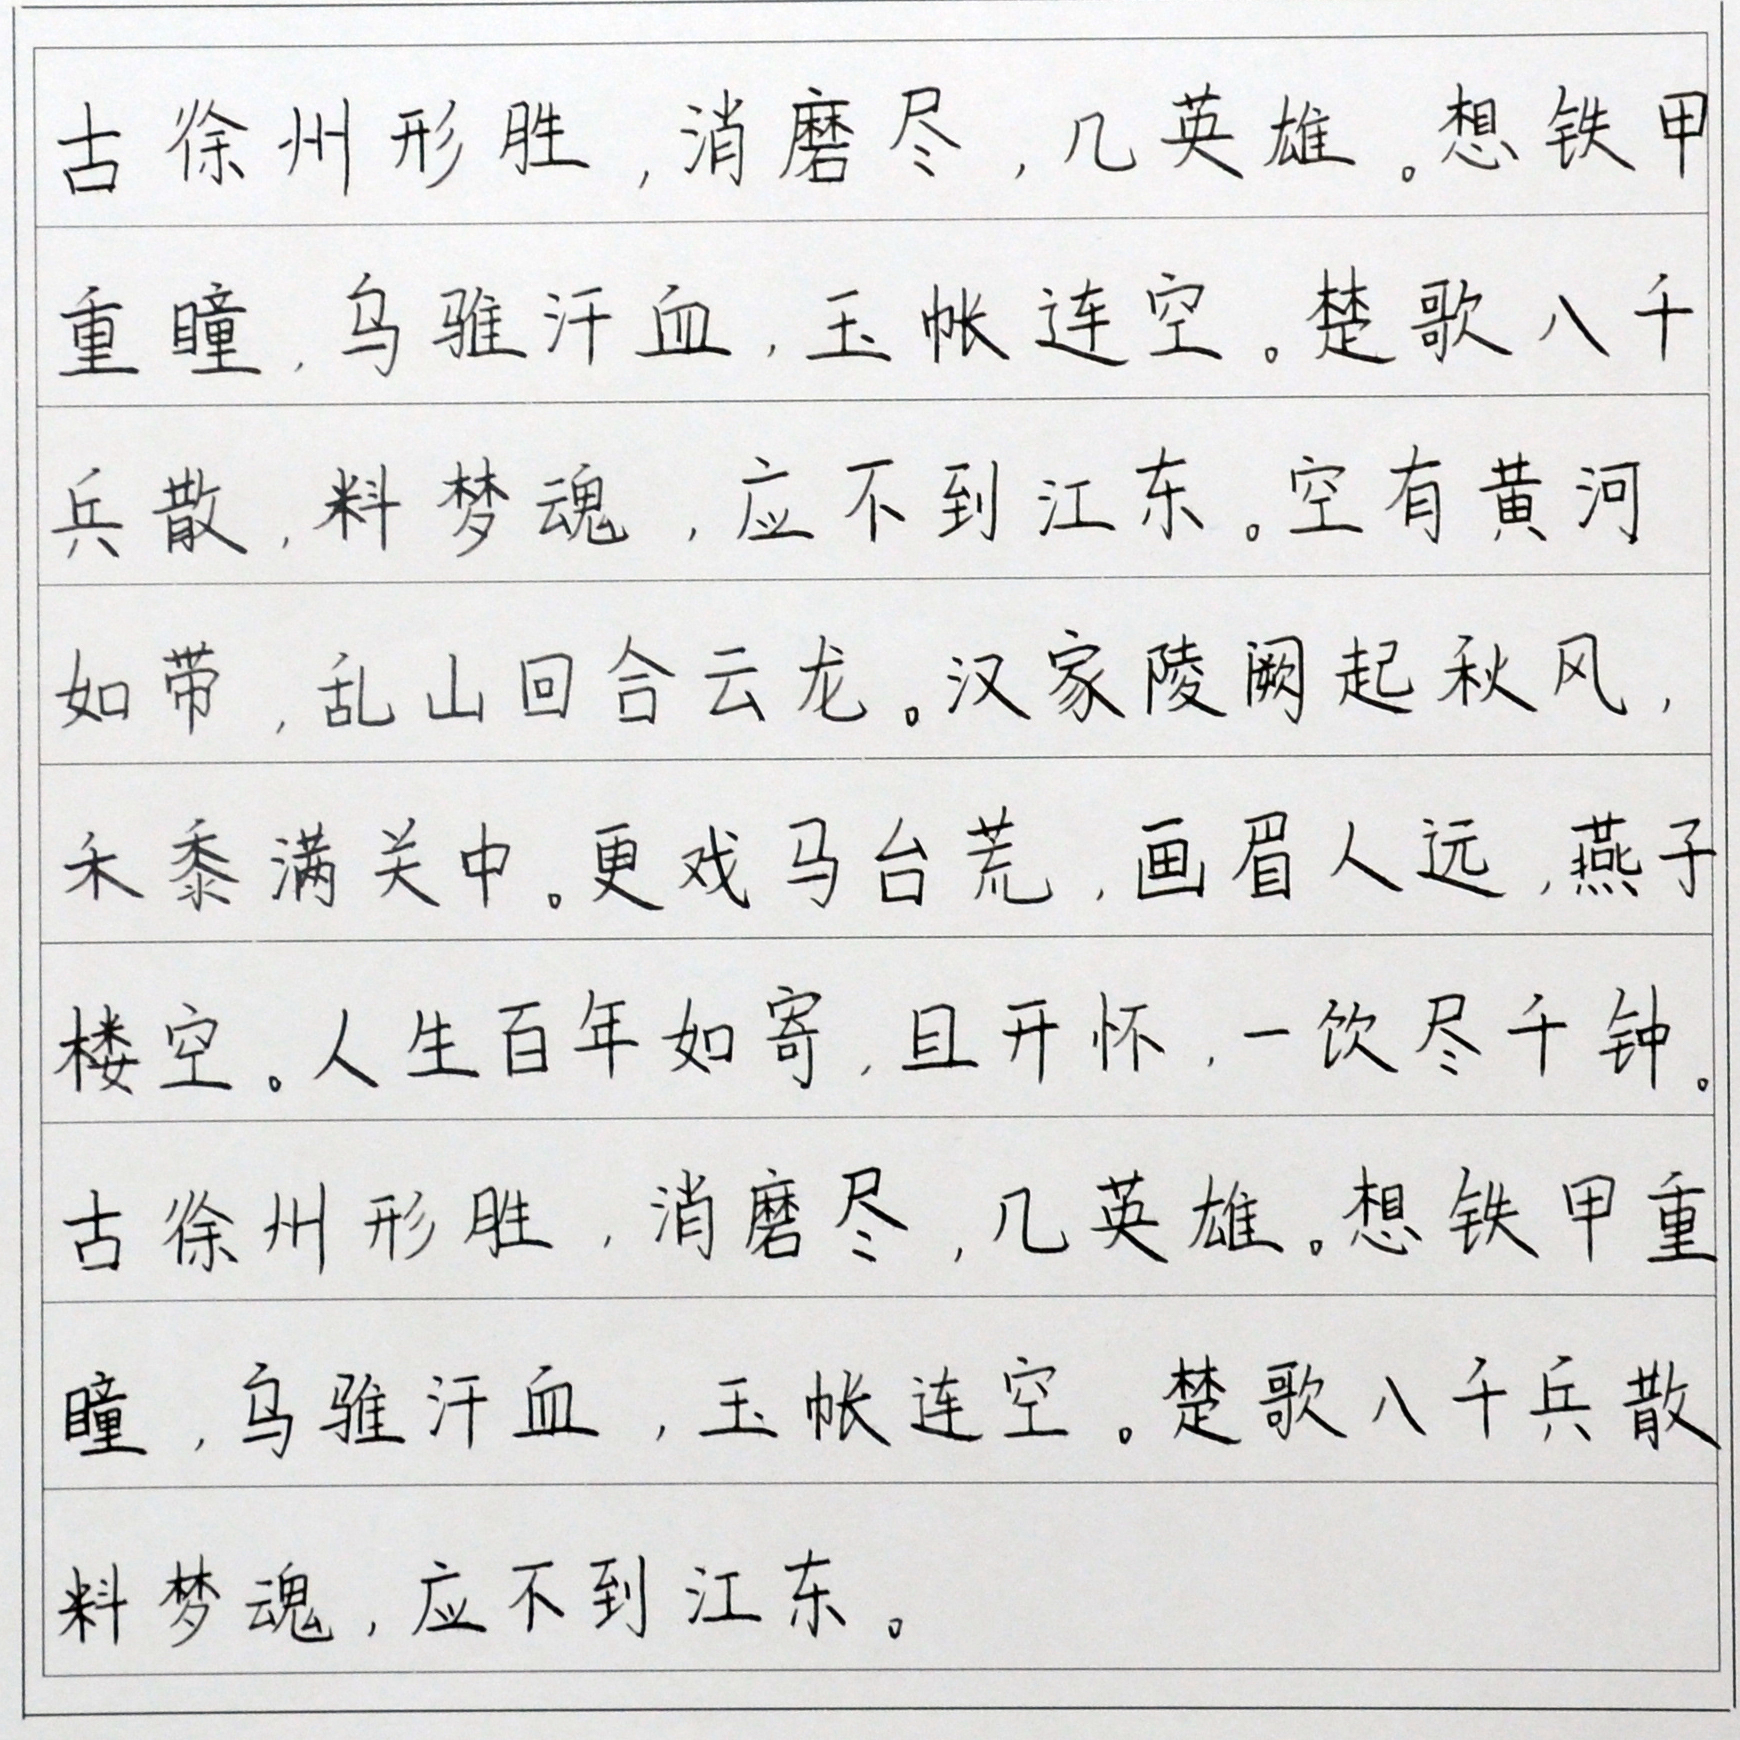 古徐州形胜，消磨尽，几英雄。想铁甲
重瞳，乌骓汗血，玉帐连空。楚歌八千
兵散，料梦魂，应不到江东。空有黄河
如带，乱山回合云龙。汉家陵阙起秋风，
禾黍满关中。更戏马台荒，画眉人远，燕子
楼空。人生百年如寄，且开怀，一饮尽千钟。
古徐州形胜，消磨尽，几英雄。想铁甲重
瞳，乌骓汗血，玉帐连空。楚歌八千兵散
料梦魂，应不到江东。